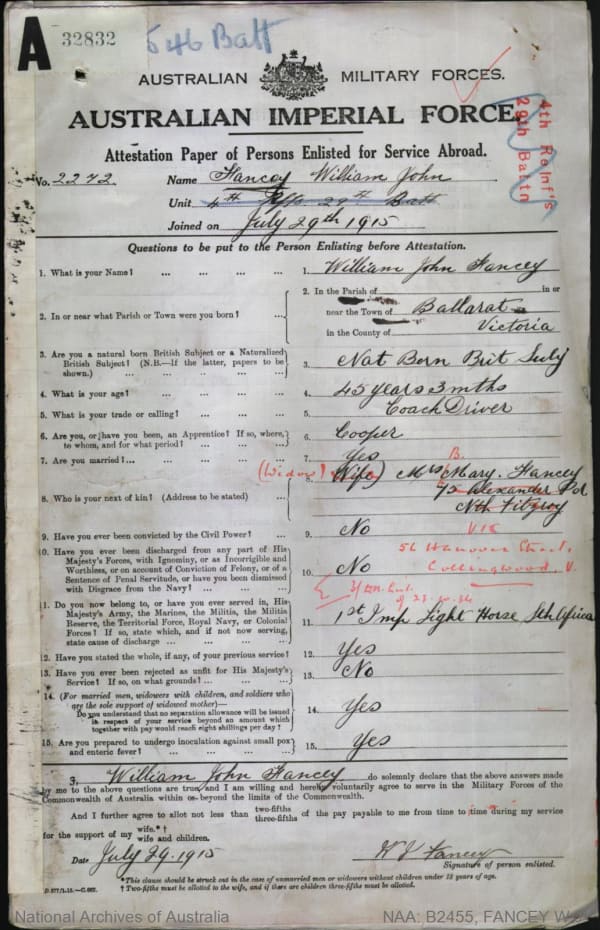 A 32832
546 Batt
AUSTRALIAN MILITARY FORCES.
AUSTRALIAN IMPERIAL FORCE.
4th Reinf's
29th Battn
Attestation Paper of Persons Enlisted for Service Abroad.
No. 2272. Name Fancey William John
Unit 4th Reffs 29th Batt
Joined on July 29th 1915
Questions to be put to the Person Enlisting before Attestation.
1. What is your Name? ... ... ... ... 1. William John Fancey
2. In or near what Parish or Town were you born? ... 2. In the Parish of in or
near the Town of Ballarat
in the County of Victoria
3. Are you a natural born British Subject or a Naturalized
British Subject? (N.B.—If the latter, papers to be
shown.) ... ... ... ... 3. Nat Born Brit Subj
4. What is your age? ... ... ... ... 4. 45 years 3 mths
5. What is your trade or calling? ... ... ... 5. Coach Driver
6. Are you, or have you been, an Apprentice? If so, where,
to whom, and for what period? ... ... ... 6. Cooper
7. Are you married? ... ... ... ... 7. Yes
(Widow) Wife) Mrs Mary B. Fancey
8. Who is your next of kin? (Address to be stated) ... 8. 75 Alexander Pd
Nth Fitzroy
VIC
56 Hanover Street,
Collingwood, V.
9. Have you ever been convicted by the Civil Power? ... 9. No
10. Have you ever been discharged from any part of His
Majesty's Forces, with Ignominy, or as Incorrigible and
Worthless, or on account of Conviction of Felony, or of a
Sentence of Penal Servitude, or have you been dismissed
with Disgrace from the Navy? ... ... ... 10. No
11. Do you now belong to, or have you ever served in, His
Majesty's Army, the Marines, the Militia, the Militia
Reserve, the Territorial Force, Royal Navy, or Colonial
Forces? If so, state which, and if not now serving,
state cause of discharge ... ... ... 11. 1st Imp Light Horse Sth Africa
12. Have you stated the whole, if any, of your previous service? 12. Yes
13. Have you ever been rejected as unfit for His Majesty's
Service? If so, on what grounds? ... ... ... 13. No
14. (For married men, widowers with children, and soldiers who
are the sole support of widowed mother)—
Do you understand that no separation allowance will be issued
in respect of your service beyond an amount which
together with pay would reach eight shillings per day? 14. Yes
15. Are you prepared to undergo inoculation against small pox
and enteric fever? ... ... ... ... 15. Yes
I, William John Fancey do solemnly declare that the above answers made
by me to the above questions are true, and I am willing and hereby voluntarily agree to serve in the Military Forces of the
Commonwealth of Australia within or beyond the limits of the Commonwealth.
And I further agree to allot not less than two-fifths three-fifths of the pay payable to me from time to time during my service
for the support of my wife.*† wife and children.
Date July 29. 1915 W J Fancey
Signature of person enlisted.
*This clause should be struck out in the case of unmarried men or widowers without children under 18 years of age.
† Two-fifths must be allotted to the wife, and if there are children three-fifths must be allotted.
National Archives of Australia NAA: B2455, FANCEY W J